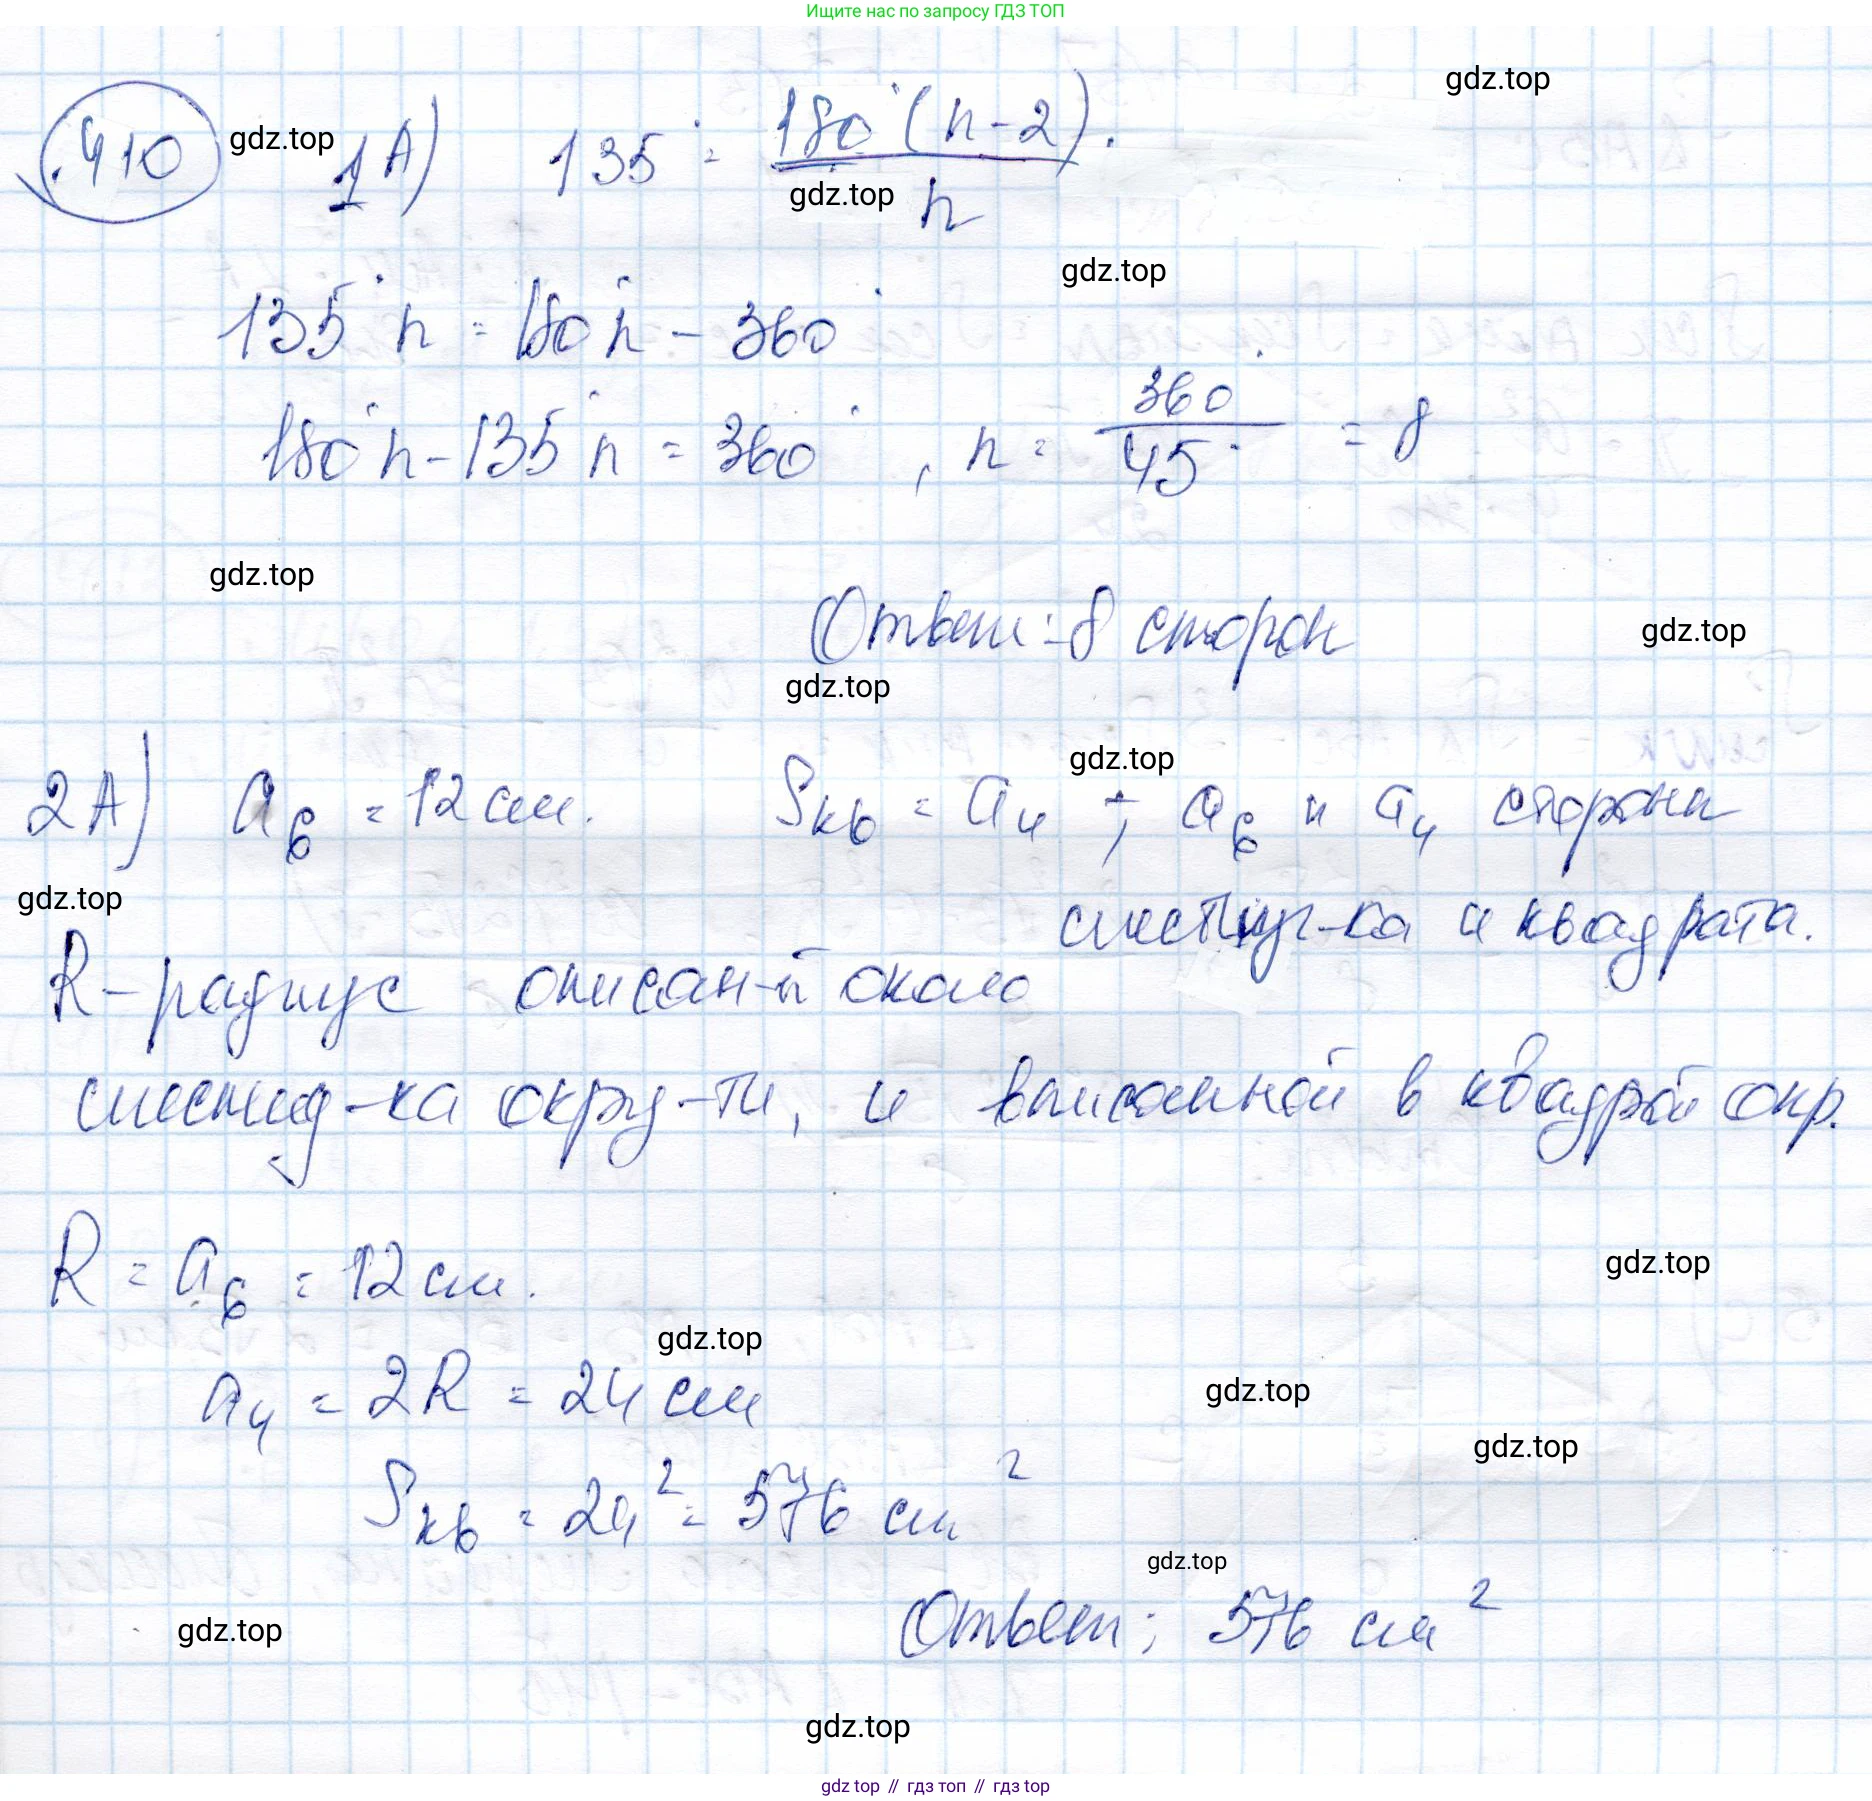 Ищите нас по запросу ГДЗ ТОП
gdz.top
410 gdz.top 1А) 135° = 180°(n-2).
gdz.top n
gdz.top
135°n = 180°n - 360°
180°n - 135°n = 360°, n = 360°/45° = 8
gdz.top
Ответ: 8 сторон
gdz.top
gdz.top
gdz.top
2А) a₆ = 12 см. Sкв = a₄ ; a₆ и a₄ стороны
gdz.top
шестиуг-ка и квадрата.
R-радиус описан-й около
шестиуг-ка окру-ти, и вписанной в квадрат окр.
R = a₆ = 12 см.
gdz.top
gdz.top
a₄ = 2R = 24 см
gdz.top
gdz.top
Sкв = 24² = 576 см²
gdz.top
Ответ: 576 см²
gdz.top
gdz.top
gdz top // гдз топ // гдз top